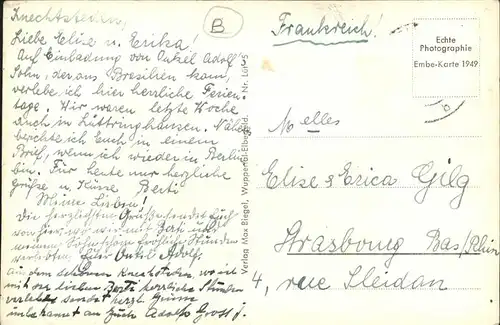 Knechtsteden,
Liebe Elise u. Erika!
Auf Einladung von Onkel Adolf
Sohn, der aus Bresilien kam,
verlebe ich hier herrliche Ferien-
tage. Wir waren letzte Woche
auch in Lüttringhausen. Näheres
berichte ich Euch in einem
Brief, wenn ich wieder in Berlin
bin. Für heute nur herzliche
Grüsse u. Küsse Berti
Meine Lieben!
Die herzlichsten Grüße sendet Euch
von hier, wo wir mit
meinem Sohn schöne fröhliche Stunden
verlebten, Euer Onkel Adolf.
aus dem schönen Knechtsteden, wo ich
mit der lieben Berti herrliche Stunden
verlebe sendet herzl. Grüsse
unbekannt an Euch Adolf Gross j.
B
Verlag Max Biegel, Wuppertal-Elberfeld. Nr.
Frankreich!
Echte
Photographie
Embe-Karte 1949
Melles
Elise & Erica Gilg
Strasbourg Bas/Rhin
4, rue Sleidan